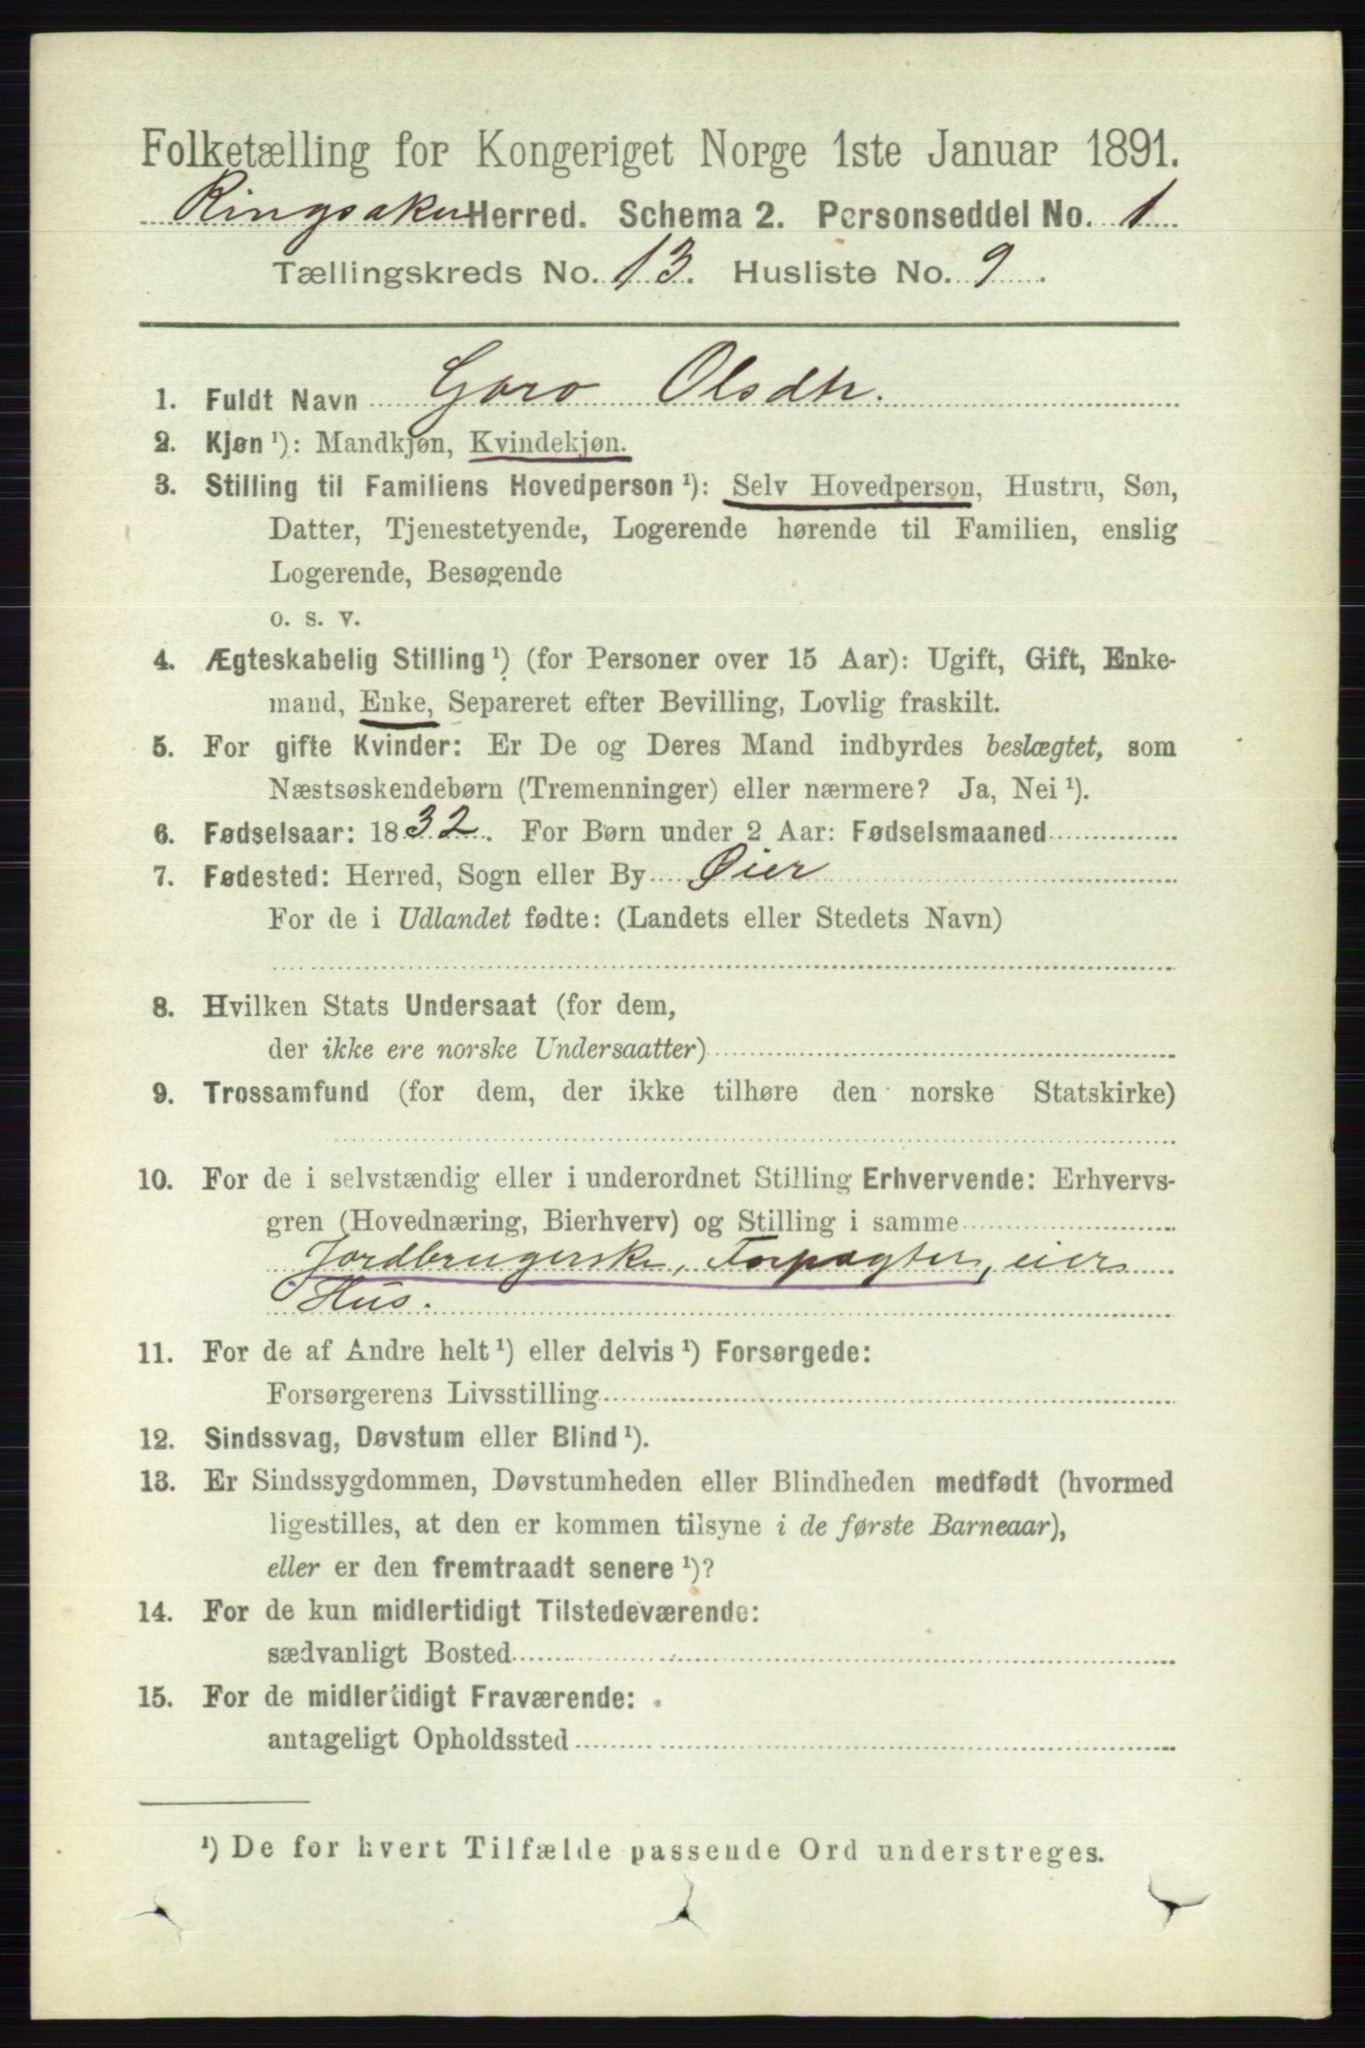 Folketælling for Kongeriget Norge 1ste Januar 1891.
Ringsaker Herred. Schema 2. Personseddel No. 1
Tællingskreds No. 13. Husliste No. 9.
1. Fuldt Navn Goro Olsdtr.
2. Kjøn ¹): Mandkjøn, Kvindekjøn.
3. Stilling til Familiens Hovedperson ¹): Selv Hovedperson, Hustru, Søn,
Datter, Tjenestetyende, Logerende hørende til Familien, enslig
Logerende, Besøgende
o. s. v.
4. Ægteskabelig Stilling ¹) (for Personer over 15 Aar): Ugift, Gift, Enke-
mand, Enke, Separeret efter Bevilling, Lovlig fraskilt.
5. For gifte Kvinder: Er De og Deres Mand indbyrdes beslægtet, som
Næstsøskendebørn (Tremenninger) eller nærmere? Ja, Nei ¹).
6. Fødselsaar: 1832. For Børn under 2 Aar: Fødselsmaaned
7. Fødested: Herred, Sogn eller By Øier
For de i Udlandet fødte: (Landets eller Stedets Navn)
8. Hvilken Stats Undersaat (for dem,
der ikke ere norske Undersaatter)
9. Trossamfund (for dem, der ikke tilhøre den norske Statskirke)
10. For de i selvstændig eller i underordnet Stilling Erhvervende: Erhvervs-
gren (Hovednæring, Bierhverv) og Stilling i samme
Jordbrugerske, Forpagter, eier
Hus.
11. For de af Andre helt ¹) eller delvis ¹) Forsørgede:
Forsørgerens Livsstilling
12. Sindssvag, Døvstum eller Blind ¹).
13. Er Sindssygdommen, Døvstumheden eller Blindheden medfødt (hvormed
ligestilles, at den er kommen tilsyne i de første Barneaar),
eller er den fremtraadt senere ¹)?
14. For de kun midlertidigt Tilstedeværende:
sædvanligt Bosted
15. For de midlertidigt Fraværende:
antageligt Opholdssted
¹) De for hvert Tilfælde passende Ord understreges.